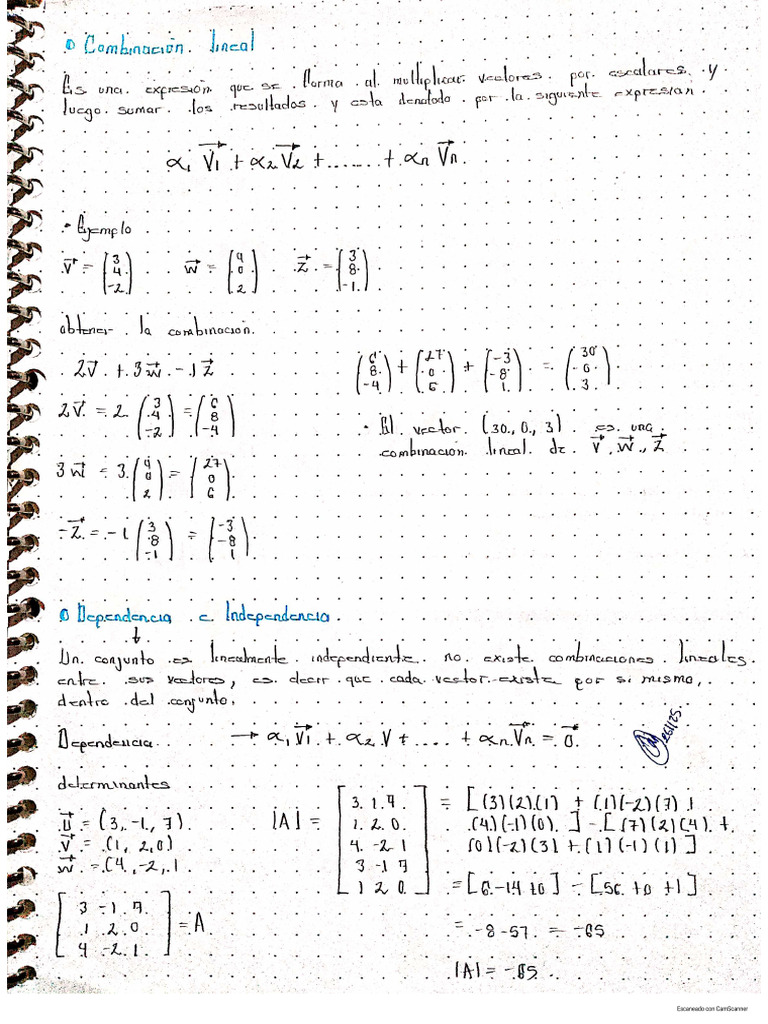 Combinación lineal
Es una expresión que se forma al multiplicar vectores por escalares y
luego sumar los resultados y esta denotado por la siguiente expresian
α₁ V1 + α₂ V2 + ...... + αn Vn
• Ejemplo
V = (3 4 -2) w = (9 0 2) z = (3 8 -1)
obtener la combinacion
2V + 3w - 1z
(6 8 -4) + (27 0 6) + (-3 -8 1) = (30 0 3)
2V = 2 (3 4 -2) = (6 8 -4)
• El vector (30, 0, 3) es una
combinacion lineal de V, w, z
3w = 3 (9 0 2) = (27 0 6)
-z = -1 (3 8 -1) = (-3 -8 1)
Dependencia e Independencia
↓
Un conjunto es linealmente independiente no existe combinaciones lineales
entre sus vectores, es decir que cada vector existe por si mismo,
dentro del conjunto.
Dependencia → α₁ V1 + α₂ V + .... + αn Vn = 0
determinantes
u = (3, -1, 7)
V = (1, 2, 0)
w = (4, -2, 1
[3 -1 7
1 2 0
4 -2 1] = A
|A| = [3 1 7
1 2 0
4 -2 1
3 -1 7
1 2 0]
= [(3)(2)(1) + (1)(-2)(7) +
(4)(-1)(0)] - [(7)(2)(4) +
(0)(-2)(3) + (1)(-1)(1)]
= [6 -14 +0] - [56 +0 +1]
= -8 -57 = -65
|A| = -65
Escaneado con CamScanner